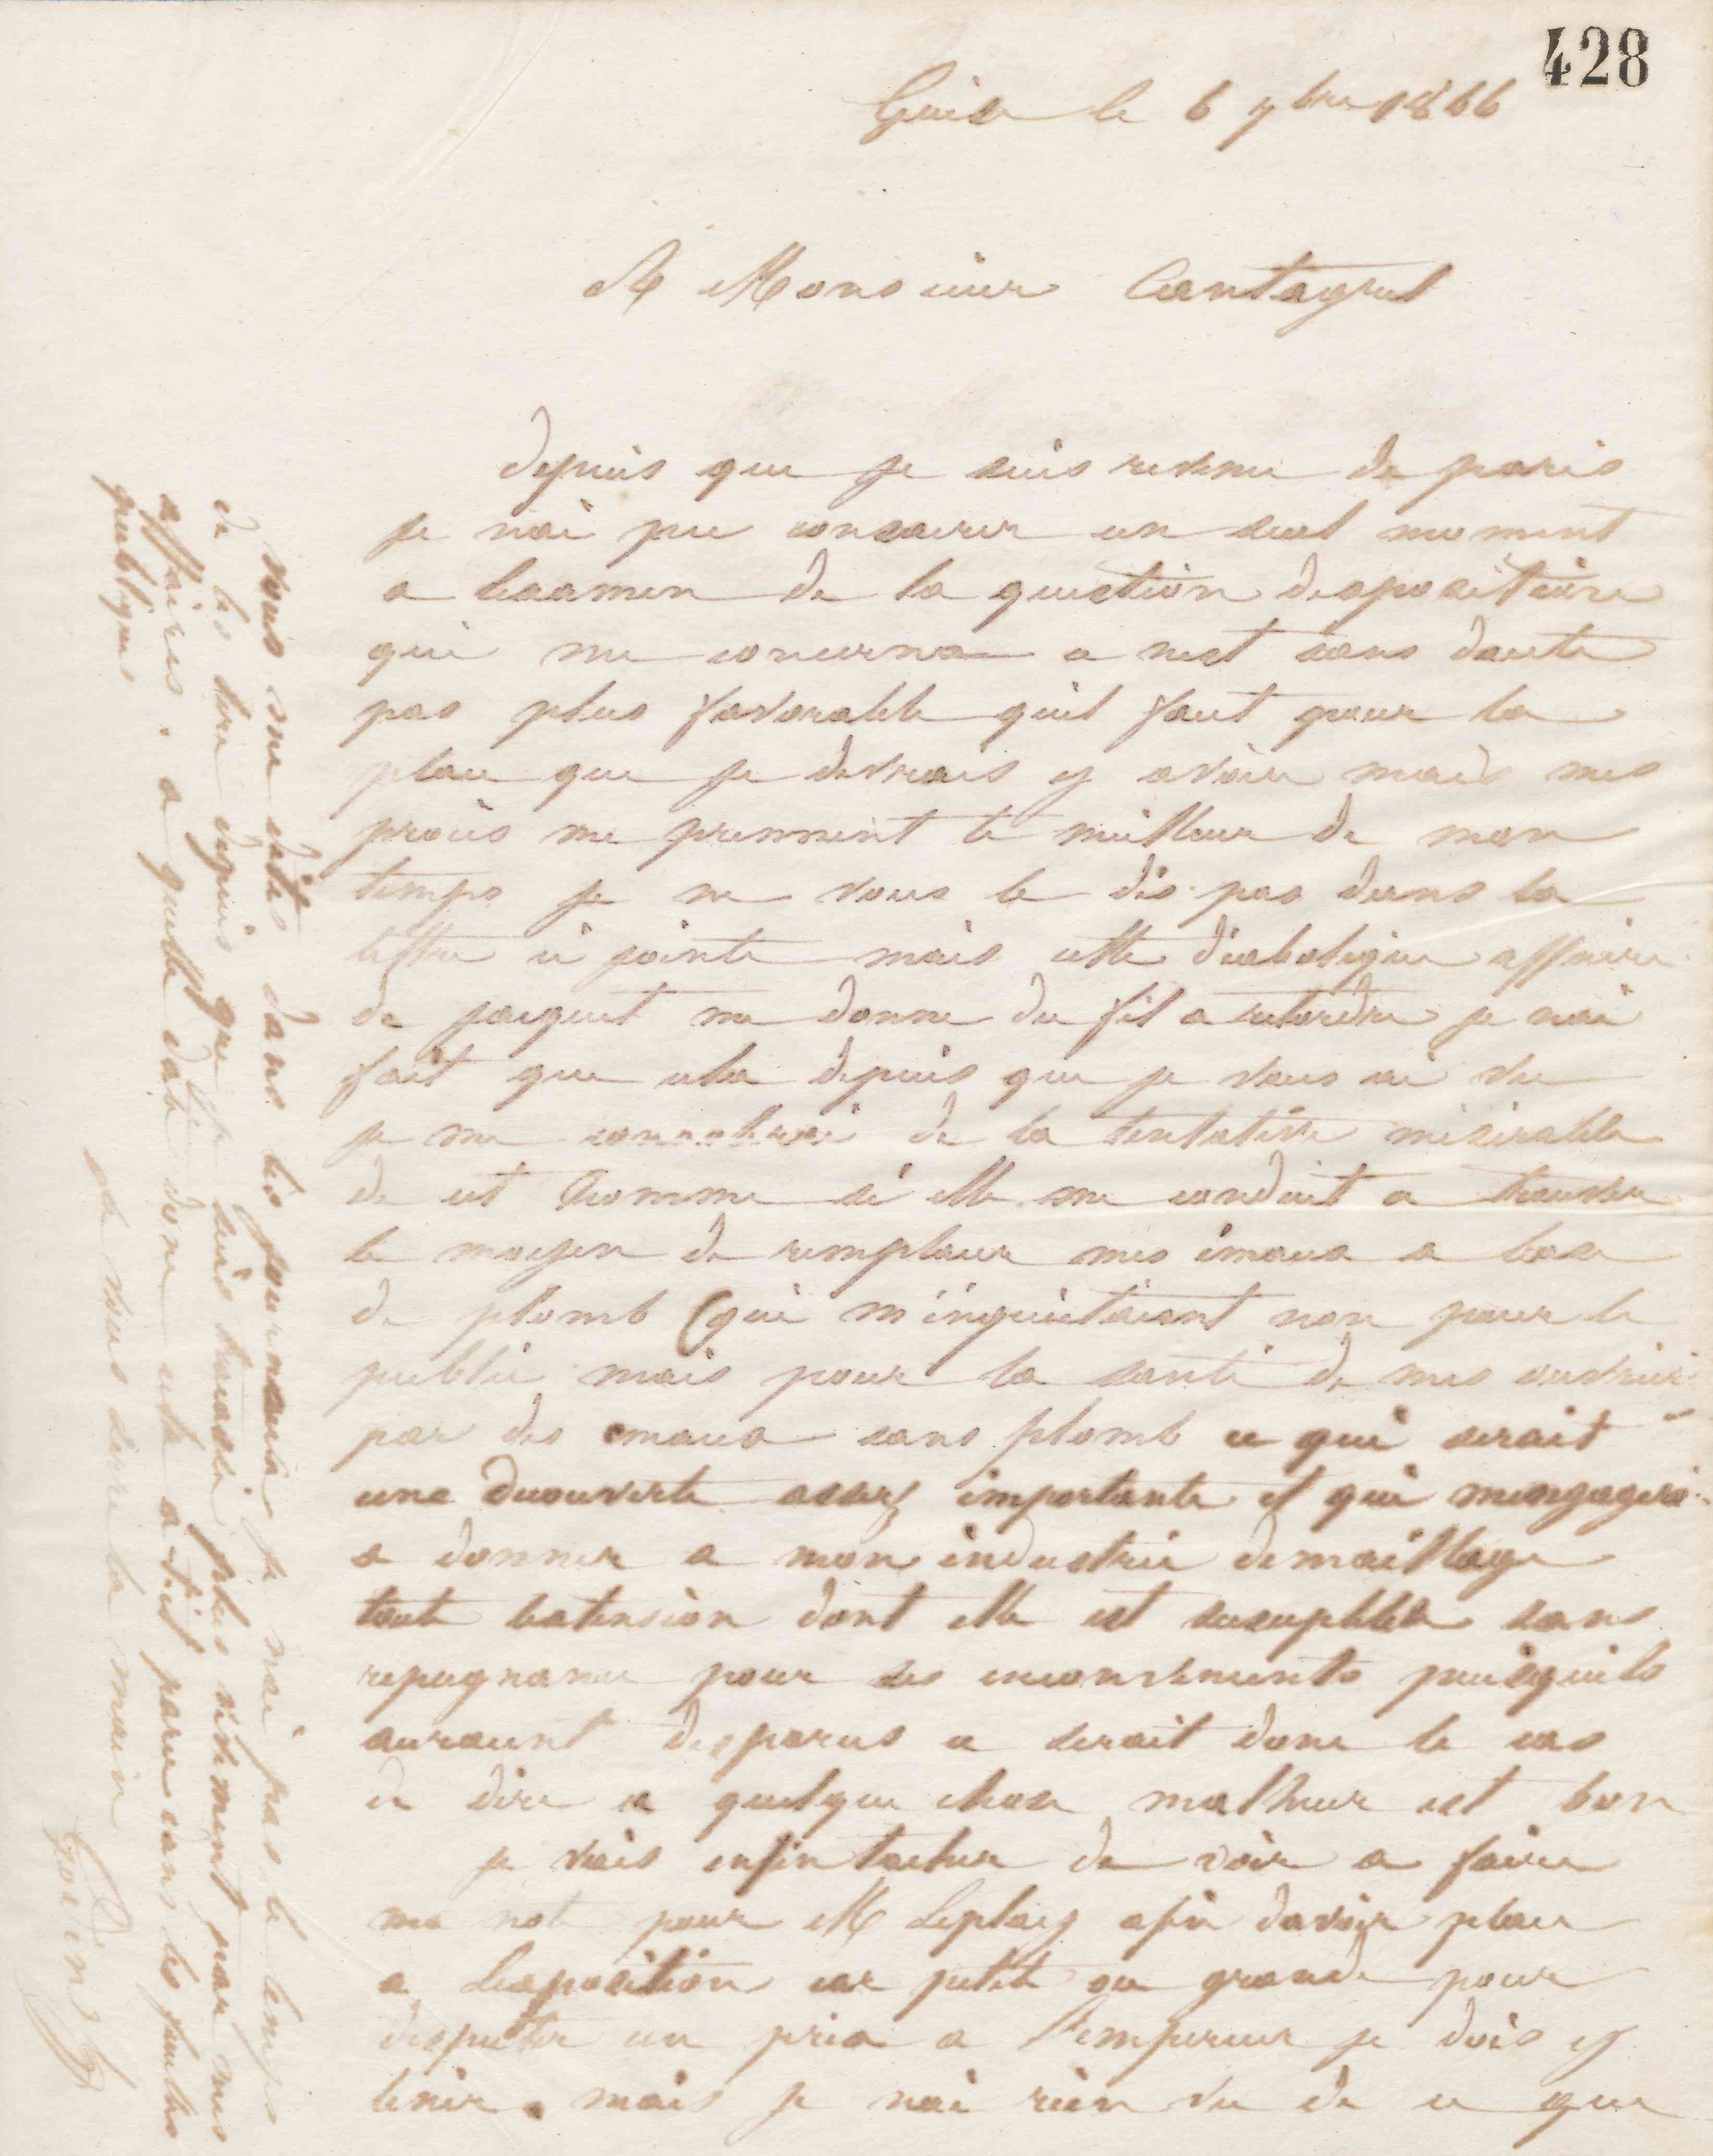 428
Guise le 6 9bre 1866
A Monsieur Cantagrel
depuis que je suis revenu de paris
je nai pu consacrer un seul moment
a lexamen de la question dexposition
qui me concerne ce nest sans doute
pas plus favorable quil faut pour la
place que je devrais y avoir mais mes
procès me prennent le meilleur de mon
temps je ne vous le dis pas dans la
lettre ci jointe mais cette diabolique affaire
de parquet me donne du fil a retordre je nai
fait que cela depuis que je vous ai vu
je me de la tentative misérable
de cet homme si elle me conduit a trouver
le moyen de remplacer mes émaux a base
de plomb (qui m'inquiétaient non pour le
public mais pour la santé de mes ouvriers
par des emaux sans plomb ce qui serait
une decouverte assez importante et qui mengagerai
a donner a mon industrie demaillage
toute lextension dont elle est susceptible sans
repugnance pour ses inconvenients puisquils
auraient disparus ce serait donc le cas
de dire a quelque chose malheur est bon
je vais enfin tacher de voir a faire
ma note pour M Leplay afin davoir place
a lexposition car petite ou grande pour
disputer un prix a l'empereur je dois y
tenir. mais je nai rien vu de ce que
vous me dites dans les journaux je nai pas le temps
de les lire depuis que je suis tracassé plus vivement par mes
affaires. a quelle date donc cela a-t-il paru dans les feuilles
publiques
je vous serre la main
Godin